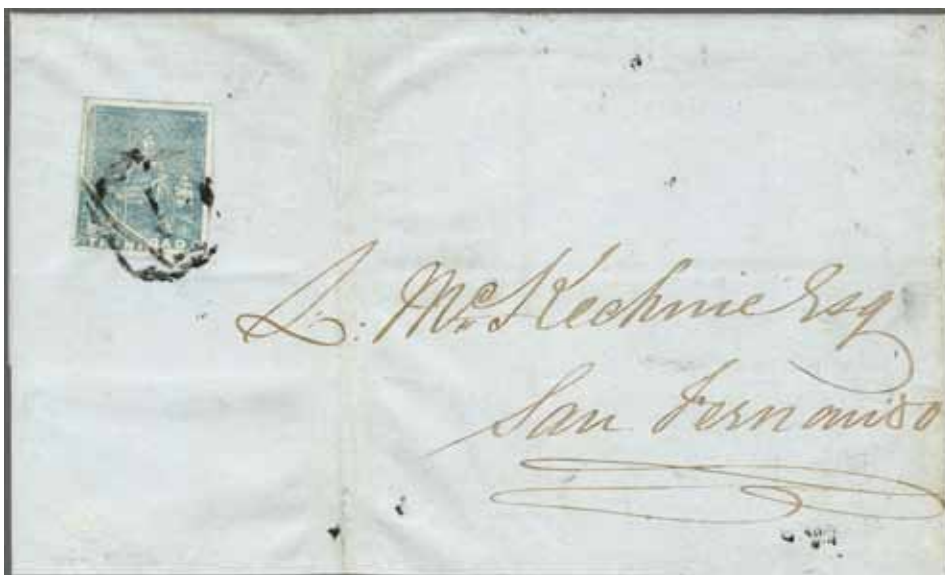 TRINIDAD
D. McKechnie Esq
San Fernando